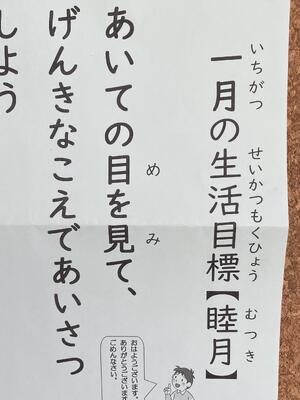 いちがつ せいかつもくひょう むつき
一月の生活目標【睦月】
め み
あいての目を見て、
げんきなこえであいさつ
しよう
おはようございます。
ありがとうございます
ごめんなさい。